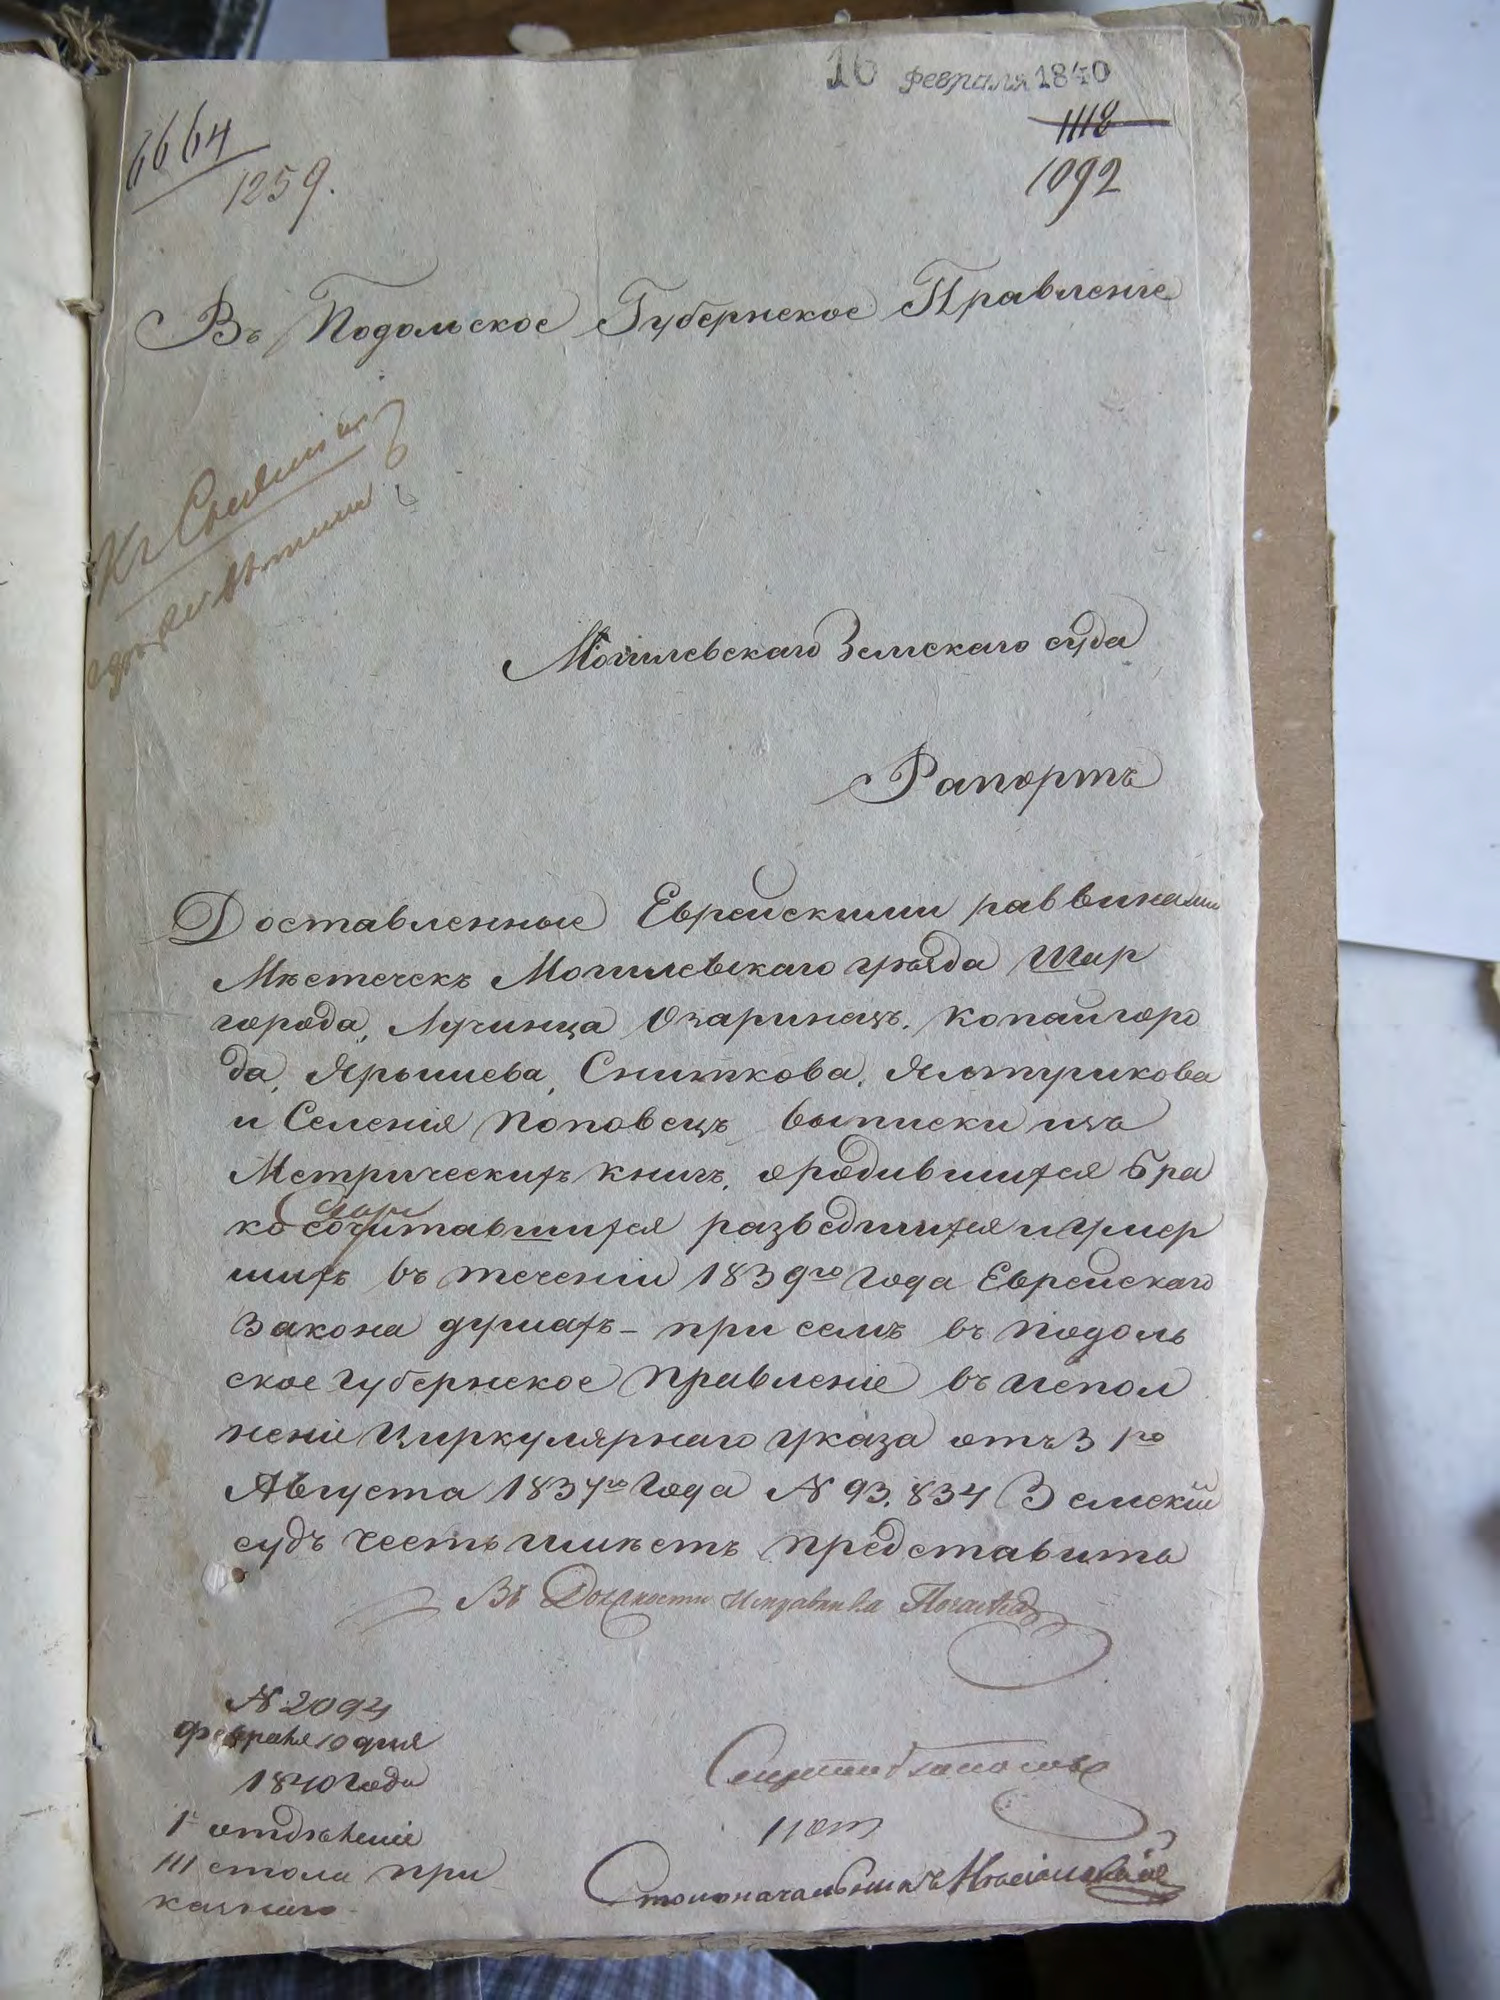 16 февраля 1840
6664
1118
1259.
1092
Въ Подольское Губернское Правленіе
Къ
Могилевскаго Земскаго суда
Рапортъ
Доставленные Еврейскими раввинами
Мѣстечекъ Могилевскаго уѣзда Шар
города, Лучинца Озаринецъ, Копайгоро
да, Ярышева, Сниткова, Ялтушкова
и Селенія Поповецъ выписки изъ
Метрическихъ книгъ, о родившихся бра
ко сочитавшихся разведшихся и умер
шихъ въ теченіи 1839го года Еврейскаго
Закона душахъ – при семъ въ подоль
ское губернское правленіе въ испол
неніе Циркулярнаго указа отъ 31го
Августа 1837го года № 93,834 Земскій
судъ честь имѣетъ представить
Въ Должности Исправника
№ 2094
февраля 10 дня
1840 года
1е отдѣленіе
III стола при
казнаго
Столоначальникъ